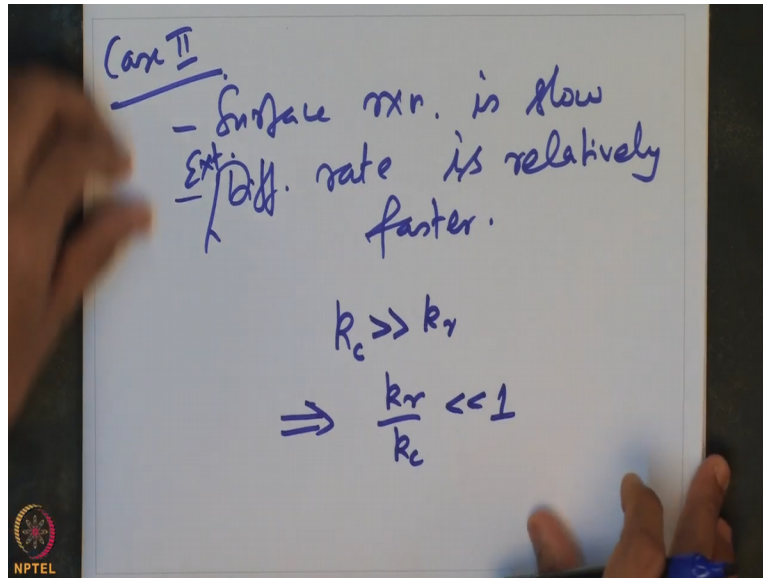 Case II
- Surface rxn. is slow
- Ext. Diff. rate is relatively
faster.
k_c >> k_r
⇒ k_r / k_c << 1
NPTEL